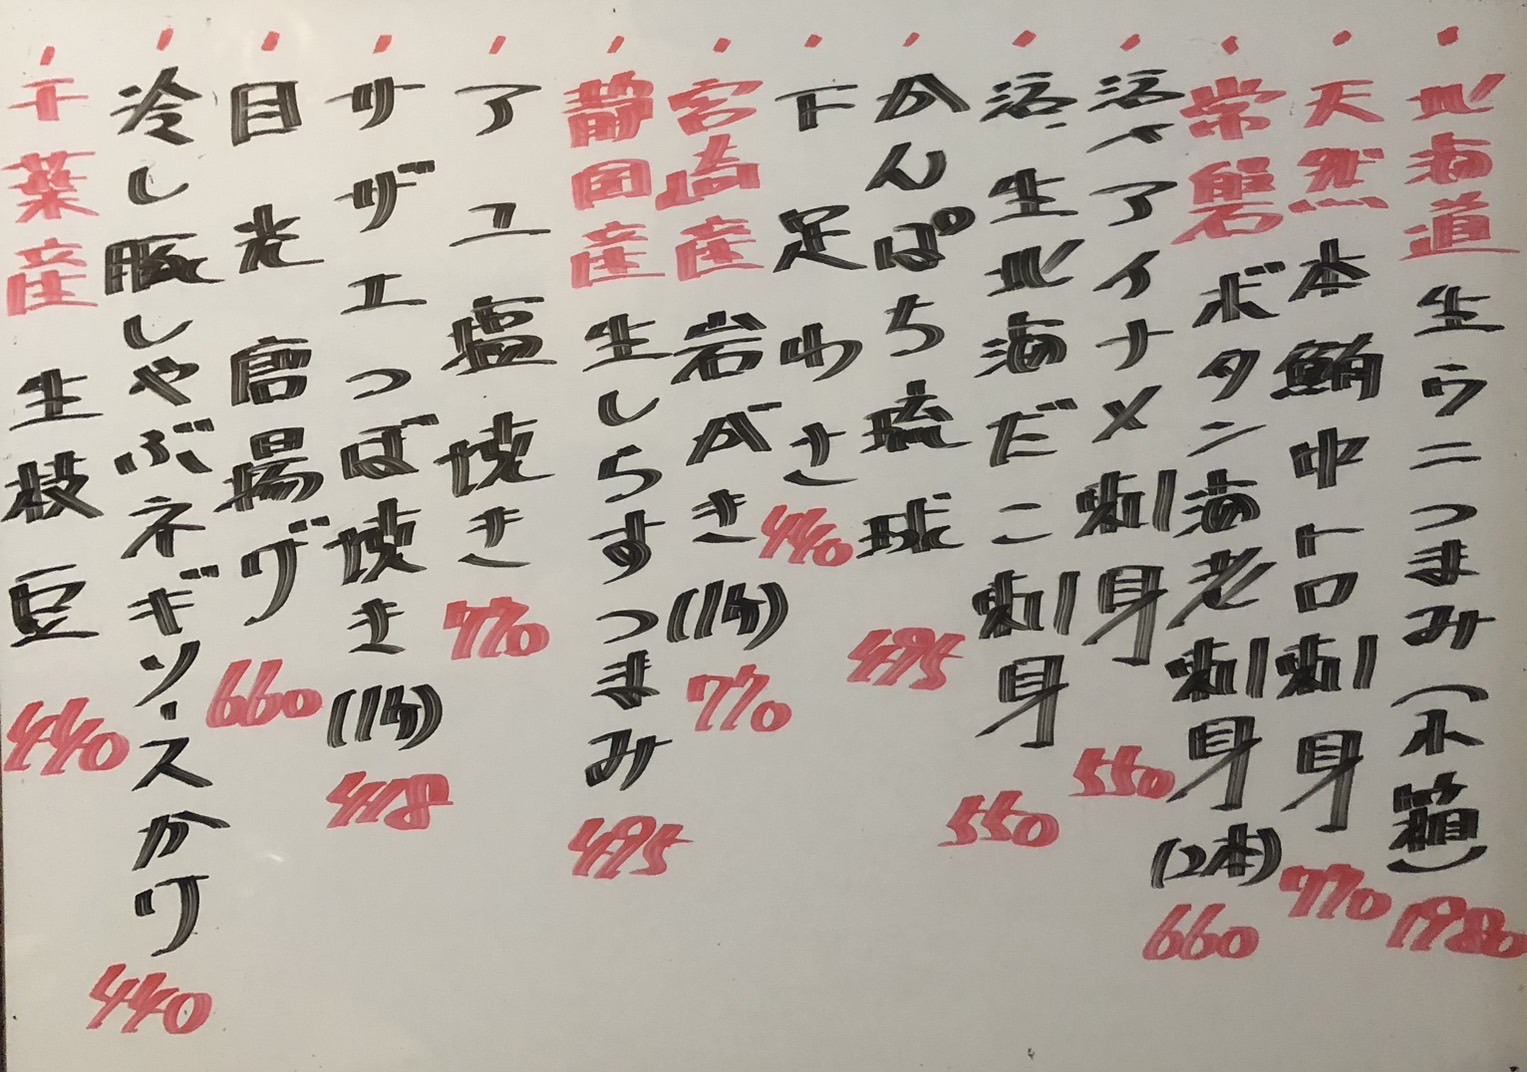 北海道 生ウニつまみ(木箱) 1980
天然 本鮪中トロ刺身 770
常磐 ボタン海老刺身(2本) 660
活〆アイナメ刺身 550
活・生北海だこ刺身 550
かんぱち琉球 495
下足わさ 440
宮崎産 岩がき(1ケ) 770
静岡産 生しらすつまみ 495
アユ塩焼き 770
サザエつぼ焼き(1ケ) 418
目光唐揚げ 660
冷し豚しゃぶネギソースかけ 440
千葉産 生枝豆 440